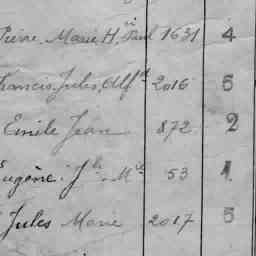 Pierre Marie H.ri Paul 1631 4
Francis Jules Alf.d 2016 5
Emile Jean 872 2
Eugène J.h M.e 53 1
Jules Marie 2017 5